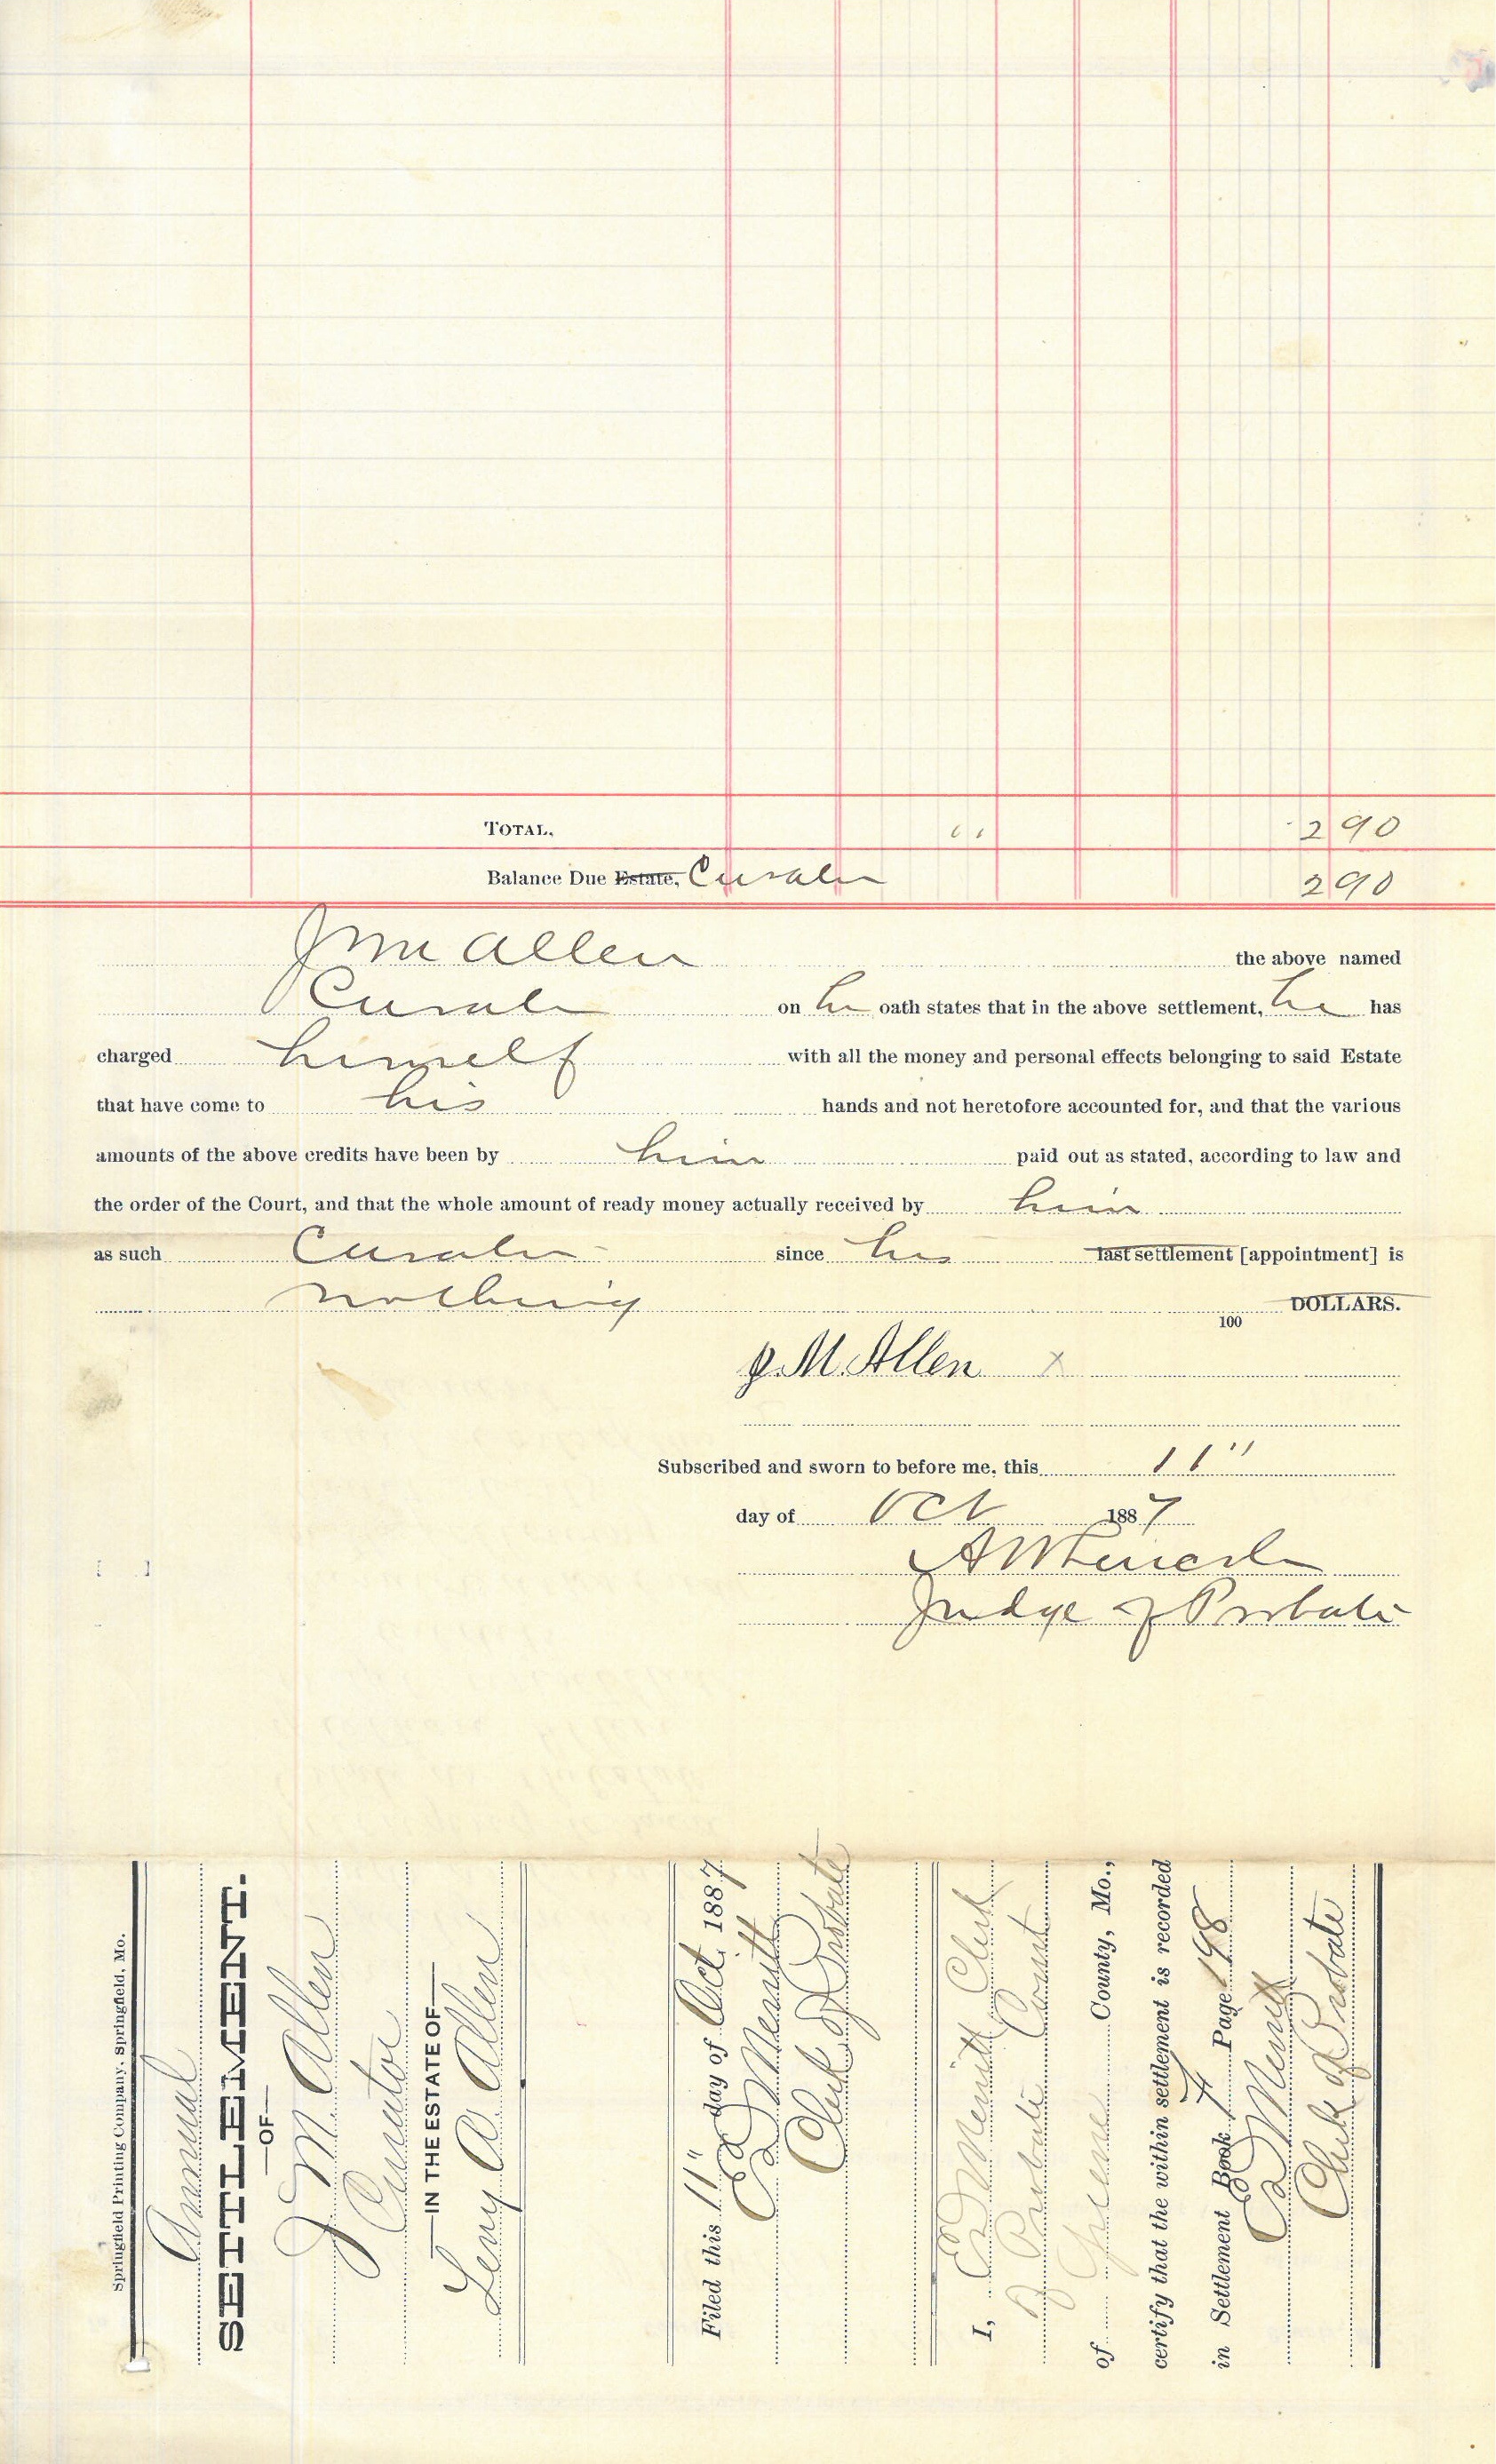 TOTAL, " 2 90
Balance Due Estate, Curator 2 90
J M Allen the above named
Curator on his oath states that in the above settlement, he has
charged himself with all the money and personal effects belonging to said Estate
that have come to his hands and not heretofore accounted for, and that the various
amounts of the above credits have been by him paid out as stated, according to law and
the order of the Court, and that the whole amount of ready money actually received by him
as such Curator since his last settlement [appointment] is
nothing DOLLARS.
100
J. M. Allen x
Subscribed and sworn to before me, this 11"
day of Oct 1887
A W Lincoln
Judge of Probate
Springfield Printing Company, Springfield, Mo.
Annual
SETTLEMENT.
—OF—
J M. Allen
Curator
—IN THE ESTATE OF—
Leny A Allen
Filed this 11" day of Oct. 1887
Ed Merritt
Clerk of Probate
I, Ed Merritt Clerk
of Probate Court
of Greene County, Mo.,
certify that the within settlement is recorded
in Settlement Book F Page 198
Ed Merritt
Clerk of Probate